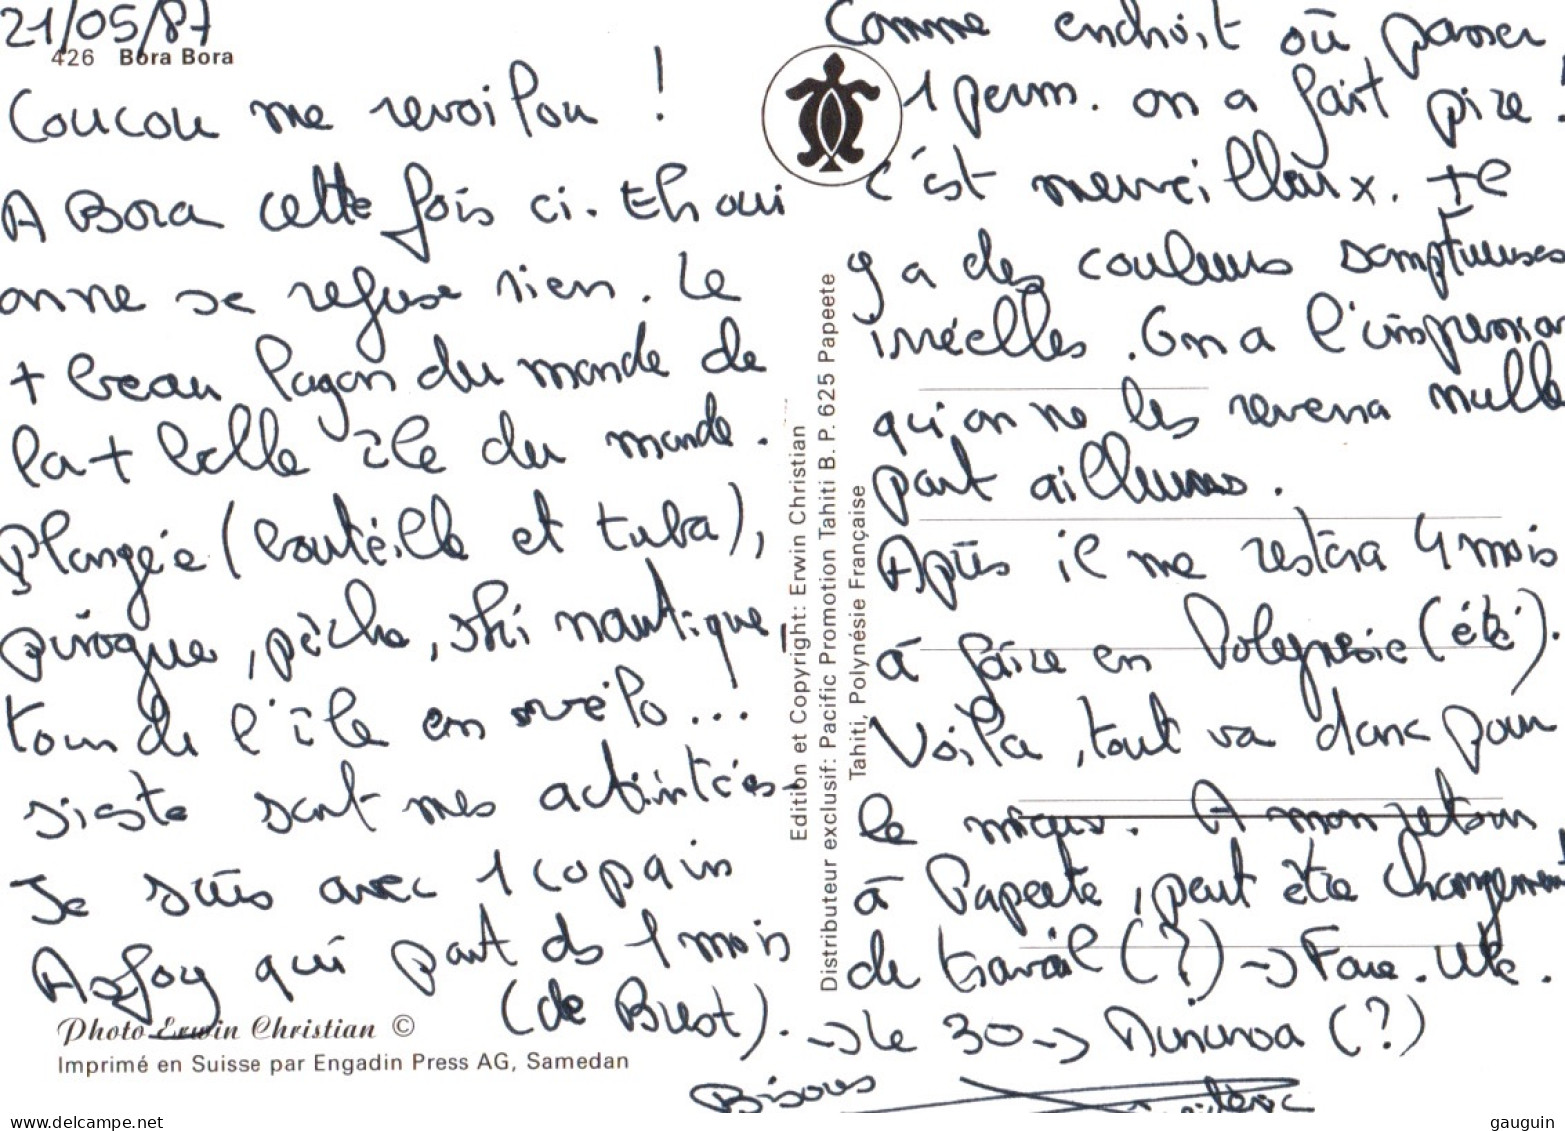 21/05/87
426 Bora Bora
Coucou me revoilou !
A Bora cette fois ci. Eh oui
on ne se refuse rien. Le
+ beau lagon du monde de
la + belle île du monde.
Plongée (bouteille et tuba),
pirogue, pêche, ski nautique,
tour de l'île en vélo...
sieste sont mes activités.
Je suis avec 1 copain
qui part ds 1 mois
(de Brest).
Photo Erwin Christian ©
Imprimé en Suisse par Engadin Press AG, Samedan
Edition et Copyright: Erwin Christian
Distributeur exclusif: Pacific Promotion Tahiti B. P. 625 Papeete
Tahiti, Polynésie Française
Comme endroit où passer
1 perm. on a fait pire !
c'est merveilleux. +e
y a des couleurs somptueuses
irréelles. On a l'impression
qu'on ne les reverra nulle
part ailleurs.
Après il me restera 4 mois
à faire en Polynésie (été).
Voila, tout va donc pour
le mieux. A mon retour
à Papeete, peut être changement
de travail (?) -> Fare. Ute.
-> le 30 -> Mururoa (?)
Bisous
gauguin